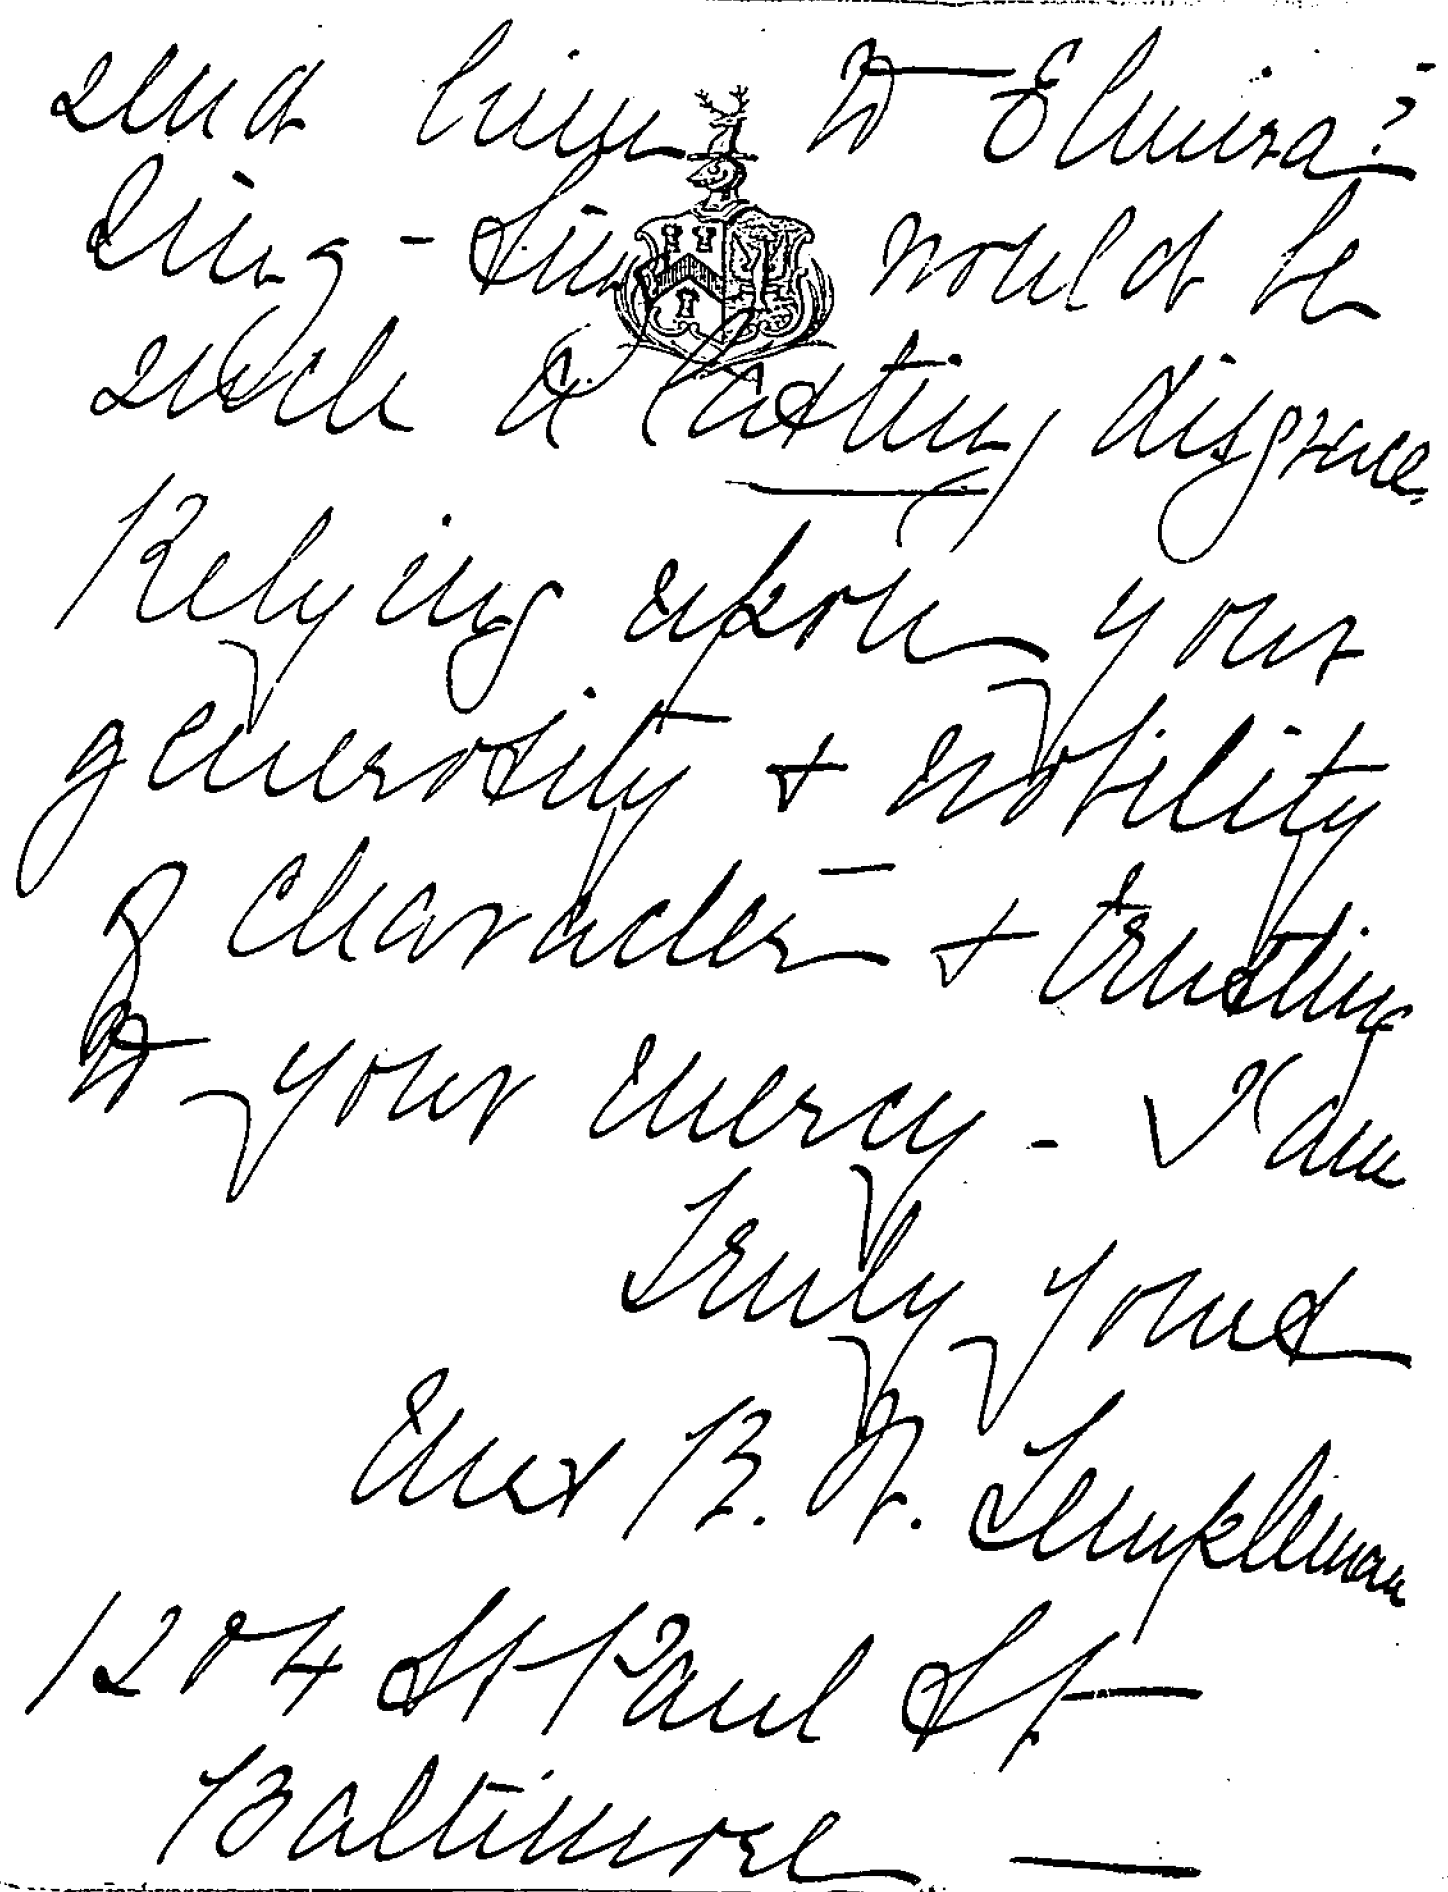 send him to Elmira?
Sing-Sing would be
such a lasting disgrace.
Relying upon your
generosity & nobility
of character & trusting
to your mercy - I am
Truly yours
Mrs B. H. Templeman
1204 St Paul St
Baltimore